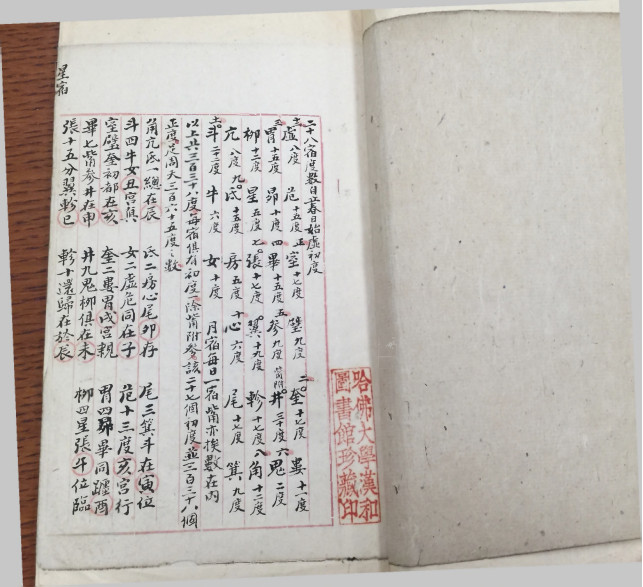 二十八宿度數日立春日始虛初度
十二虛八度 危十五度 正室十七度 壁九度 二奎十七度 婁十一度
三胃十五度 昴十度 四畢十五度 五參九度觜附 井三十度 六鬼二度
柳十三度 星五度 七張十七度 翼十九度 軫十七度 八角十二度
亢八度 九氐十五度 房五度 十心六度 尾十七度 箕九度
十一斗二十二度 牛六度 女十度 月宿每日一宿觜亦挨數在內
以上共三百三十八度每宿俱有初度一除觜附參該二十七個初度並三百三十八個
正度足周天三百六十五度之數
角亢氐一總在辰 氐二房心尾卯存 尾三箕斗在寅位
斗四牛女丑宮真 女二虛危同在子 危十三度亥宮行
室壁奎初都在亥 奎二婁胃戌宮親 胃四昴畢同躔酉
畢七觜參井在申 井九鬼柳俱在未 柳四星張午位臨
張十五分翼軫巳 軫十還歸在於辰
星宿
哈佛大學漢和
圖書館珍藏印